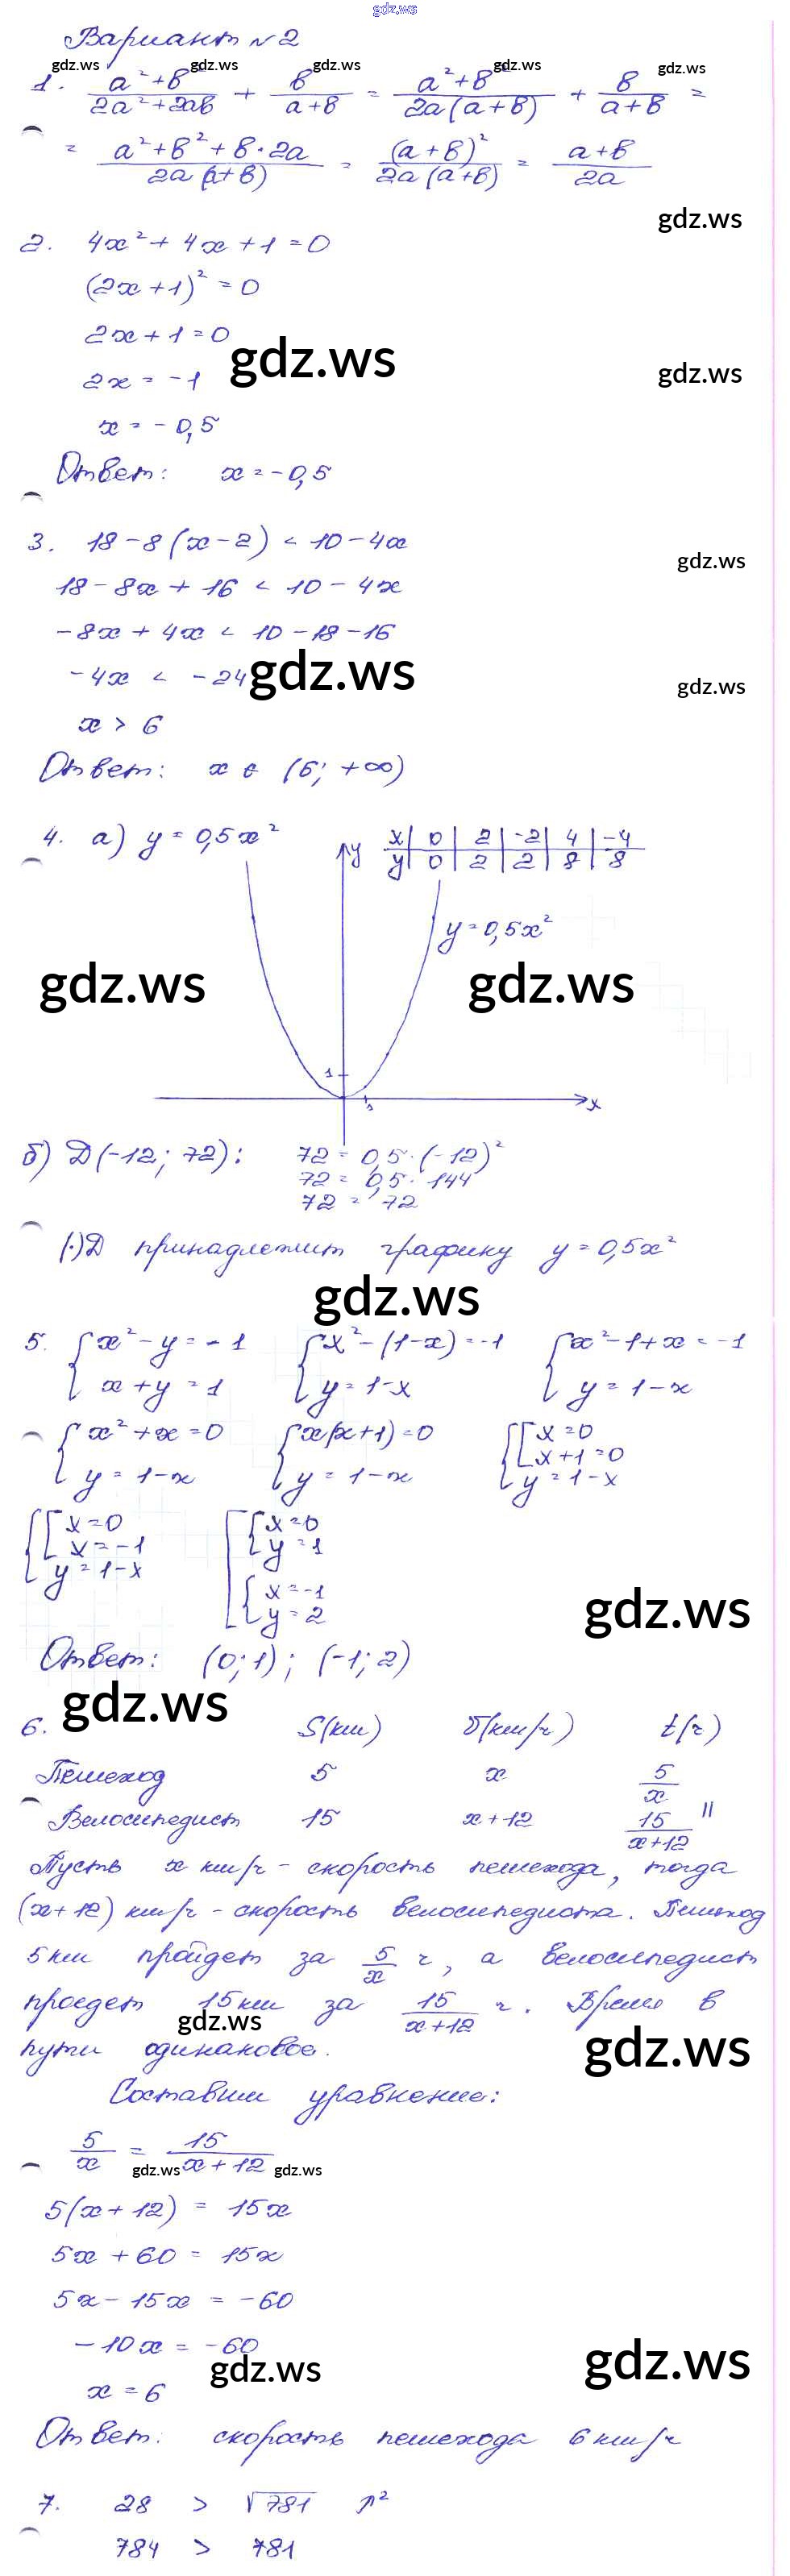 gdz.ws
Вариант №2
gdz.ws gdz.ws gdz.ws gdz.ws gdz.ws
1. (a²+b²)/(2a²+2ab) + b/(a+b) = (a²+b²)/(2a(a+b)) + b/(a+b) =
= (a²+b²+b·2a)/(2a(a+b)) = (a+b)²/(2a(a+b)) = (a+b)/(2a)
gdz.ws
2. 4x²+4x+1=0
(2x+1)²=0
2x+1=0
gdz.ws
2x=-1 gdz.ws
x=-0,5
Ответ: x=-0,5
3. 18-8(x-2)<10-4x
gdz.ws
18-8x+16<10-4x
-8x+4x<10-18-16
-4x < -24 gdz.ws gdz.ws
x > 6
Ответ: x∈(6; +∞)
4. а) y=0,5x²
y x | 0 | 2 | -2 | 4 | -4
y | 0 | 2 | 2 | 8 | 8
y=0,5x²
gdz.ws gdz.ws
1
x
б) D(-12; 72): 72=0,5·(-12)²
72=0,5·144
72=72
(·)D принадлежит графику y=0,5x²
gdz.ws
5. {x²-y=-1 {x²-(1-x)=-1 {x²-1+x=-1
x+y=1 y=1-x y=1-x
{x²+x=0 {x(x+1)=0 {[x=0
x+1=0
y=1-x y=1-x y=1-x
{[x=0 [{x=0
x=-1 y=1
y=1-x {x=-1
y=2
gdz.ws
Ответ: (0;1); (-1;2)
gdz.ws
6. S(км) v(км/ч) t(ч)
Пешеход 5 x 5/x
Велосипедист 15 x+12 15/(x+12) ||
Пусть x км/ч - скорость пешехода, тогда
(x+12) км/ч - скорость велосипедиста. Пешеход
5км пройдет за 5/x ч, а велосипедист
проедет 15км за 15/(x+12) ч. Время в
gdz.ws
пути одинаковое.
gdz.ws
Составим уравнение:
5/x = 15/(x+12)
gdz.ws gdz.ws
5(x+12) = 15x
5x+60=15x
5x-15x=-60
-10x=-60
gdz.ws gdz.ws
x=6
Ответ: скорость пешехода 6км/ч
7. 28 > √781 ↑²
784 > 781